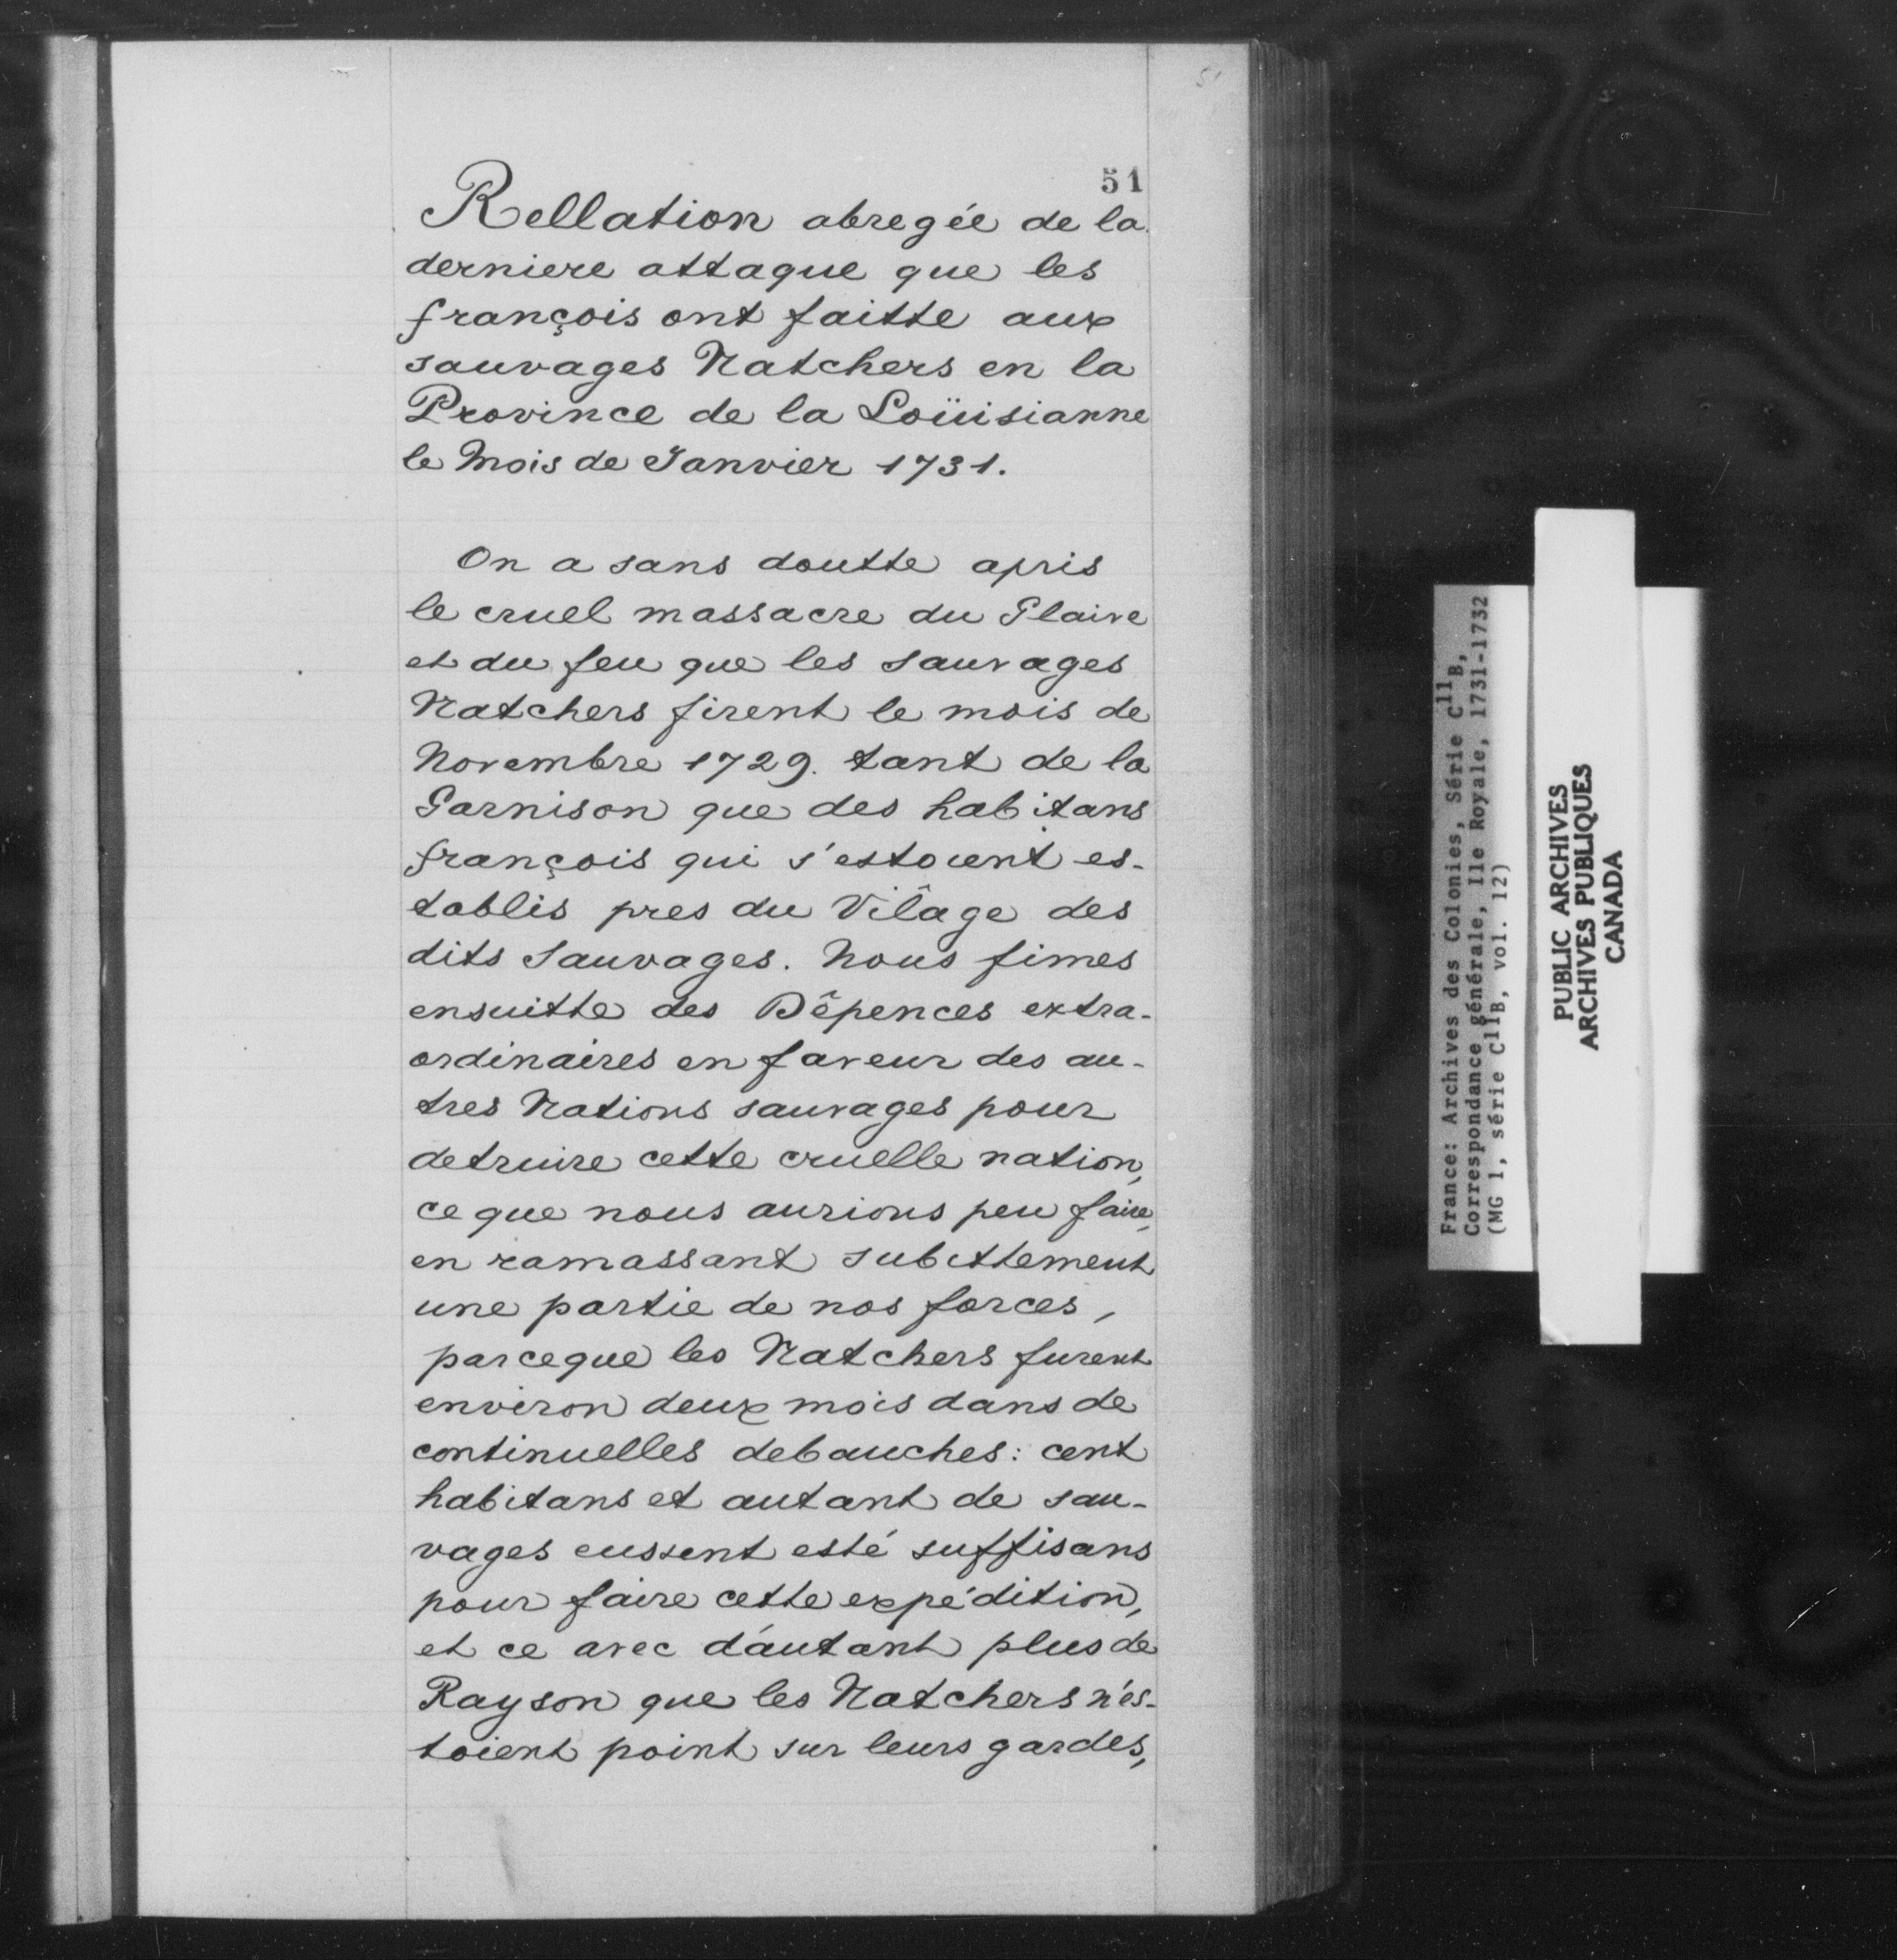 51
51
Rellation abregée de la
derniere attaque que les
françois ont faitte aux
sauvages Natchers en la
Province de la Loüisianne
le Mois de Janvier 1731.
On a sans doutte apris
le cruel massacre du Glaive
et du feu que les sauvages
Natchers firent le mois de
Novembre 1729. tant de la
Garnison que des habitans
françois qui s'estoient es-
tablis pres du Vilâge des
dits Sauvages. Nous fimes
ensuitte des Dêpences extra-
ordinaires en faveur des au-
tres Nations sauvages pour
detruire cette cruelle nation,
ce que nous aurions peu faire,
en ramassant subittement
une partie de nos forces,
parceque les Natchers furent
environ deux mois dans de
continuelles debauches: cent
habitans et autant de sau-
vages eussent esté suffisans
pour faire cette expédition,
et ce avec d'autant plus de
Rayson que les Natchers n'es-
toient point sur leurs gardes,
France: Archives des Colonies, Série C11B,
Correspondance générale, Ile Royale, 1731-1732
(MG 1, série C11B, vol. 12)
PUBLIC ARCHIVES
ARCHIVES PUBLIQUES
CANADA